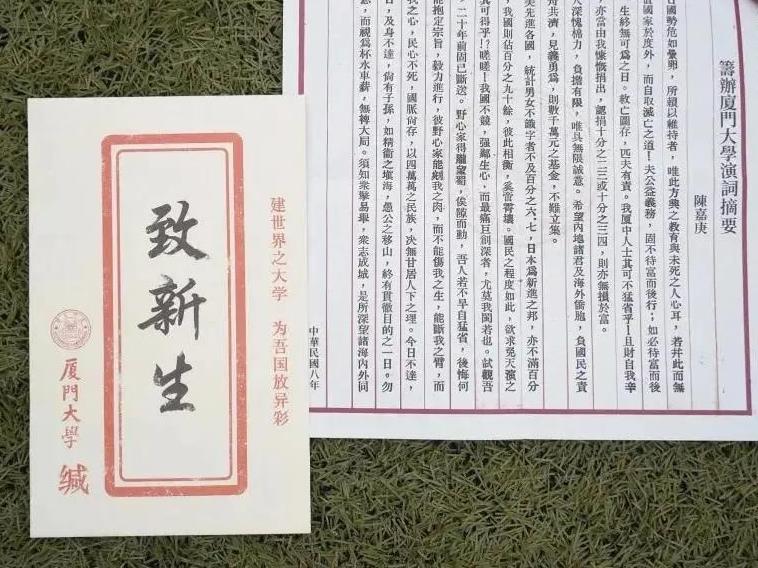 籌辦廈門大學演詞摘要
陳嘉庚
國勢危如壘卵，所賴以維持者，唯此方興之教育與未死之人心耳，若幷此而無
國家於度外，而自取滅亡之道！夫公益義務，固不待富而後行；如必待富而後
生終無可爲之日。救亡圖存，匹夫有責。我廈中人士其可不猛省乎！且財自我辛
亦當由我慷慨捐出，認捐十分之二三或十分之三四，則亦無損於富。
人深愧棉力，負擔有限，唯具無限誠意。希望內地諸君及海外僑胞，負國民之責
共濟，見義勇爲，則數千萬元之基金，不難立集。
美先進各國，統計男女不識字者不及百分之六、七，日本爲新進之邦，亦不滿百分
我國則佔百分之九十餘，彼此相衡，奚啻霄壤。國民之程度如此，欲求免天演之
其可得乎！？嗟嗟！我國不競，強鄰生心，而最痛巨創深者，尤莫我閩若也。試觀吾
二十年前固已斷送。野心家得隴望蜀，俟隙而動，吾人若不早自猛省，後悔何
能抱定宗旨，毅力進行，彼野心家能剜我之肉，而不能傷我之生，能斷我之臂，而
我之心，民心不死，國脈尙存，以四萬萬之民族，决無甘居人下之理。今日不達，
日，及身不達，尙有子孫，如精衞之塡海，愚公之移山，終有貫徹目的之一日。勿
而視爲杯水車薪，無裨大局。須知衆擎易舉，衆志成城，是所深望諸海內外同
中華民國八年
建世界之大学 为吾国放异彩
致新生
厦门大學 缄